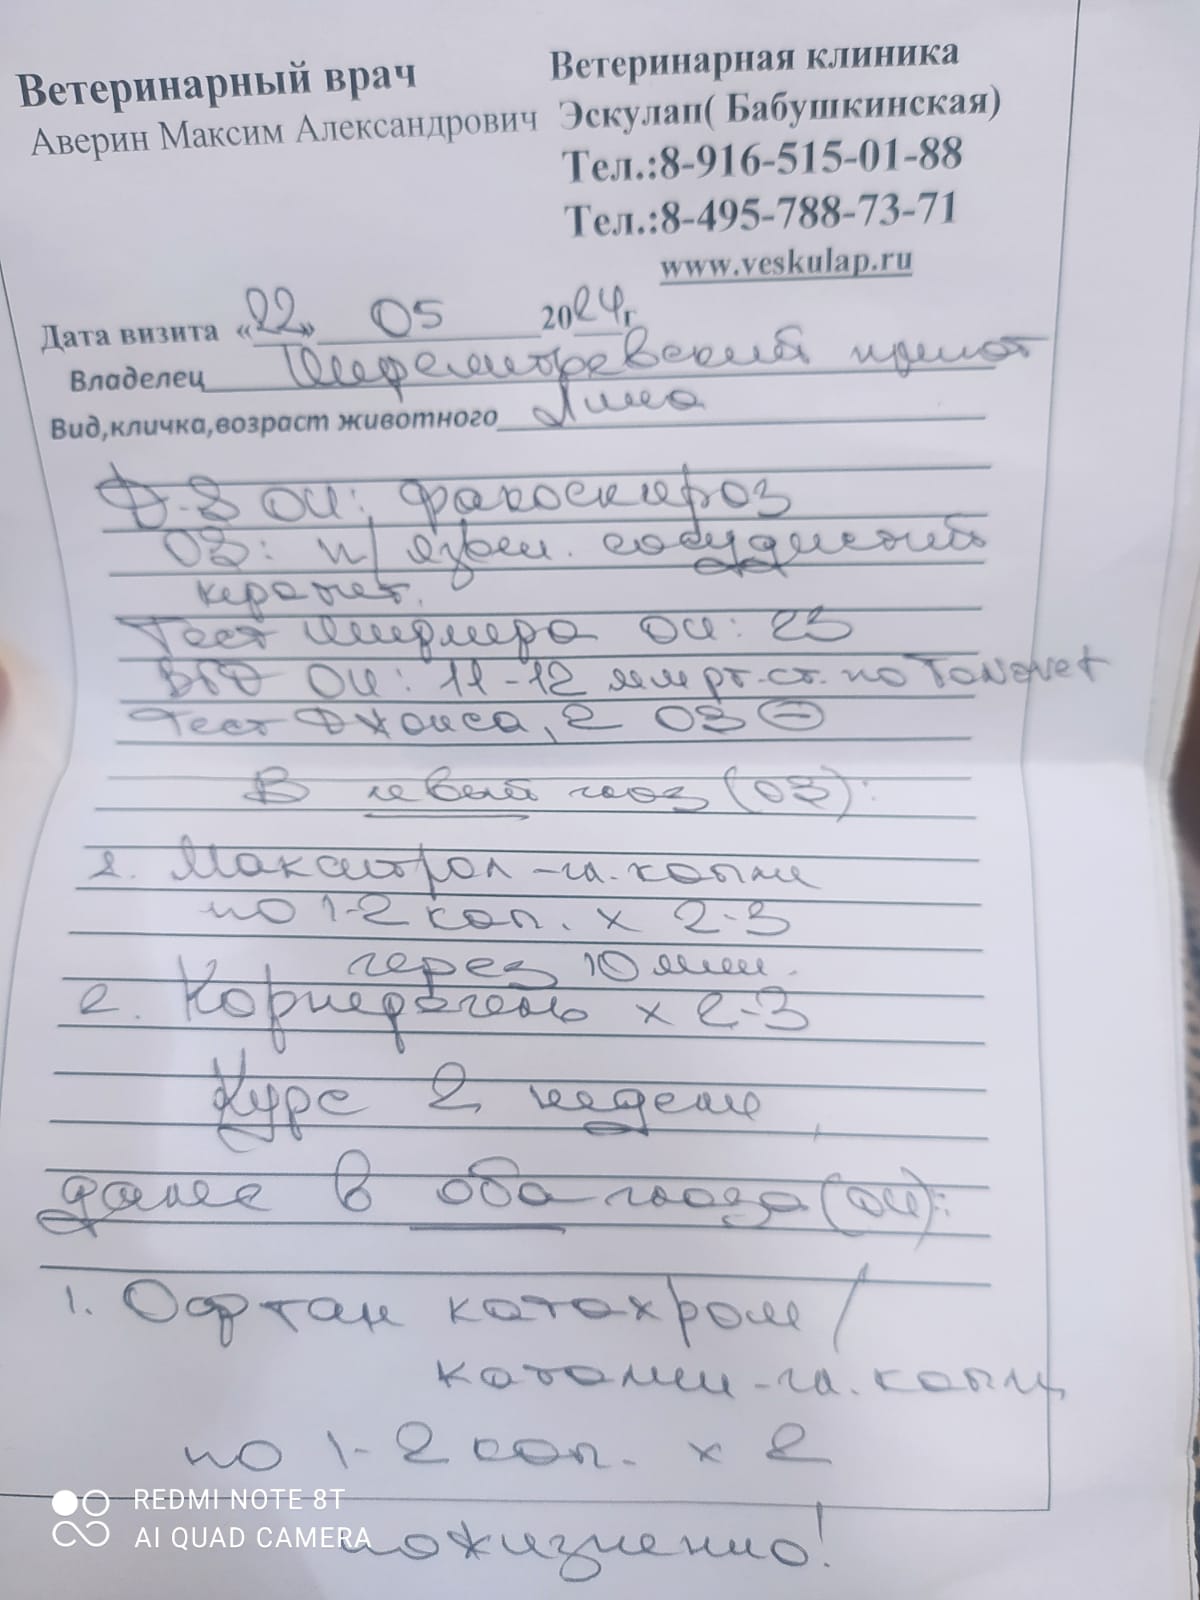 Ветеринарный врач
Аверин Максим Александрович
Ветеринарная клиника
Эскулап( Бабушкинская)
Тел.:8-916-515-01-88
Тел.:8-495-788-73-71
www.veskulap.ru
Дата визита «22» 05 2024г
Владелец Шереметьевский приют
Вид,кличка,возраст животного Лима
Д-З ОИ: факосклероз
ОЗ: п/язвен. сосудистый
кератит.
Тест Ширмера ОИ: 23
ВГД ОИ: 11-12 мм рт.ст. по Tonovet
Тест Джонса 1,2 ОЗ (-)
В левый глаз (ОЗ):
1. Макситрол - гл. капли
по 1-2 кап. х 2-3
через 10 мин.
2. Корнерегель х 2-3
Курс 2 недели,
далее в оба глаза (ОИ):
1. Офтан катахром /
катални - гл. капли
по 1-2 кап. х 2
пожизненно!
REDMI NOTE 8T
AI QUAD CAMERA